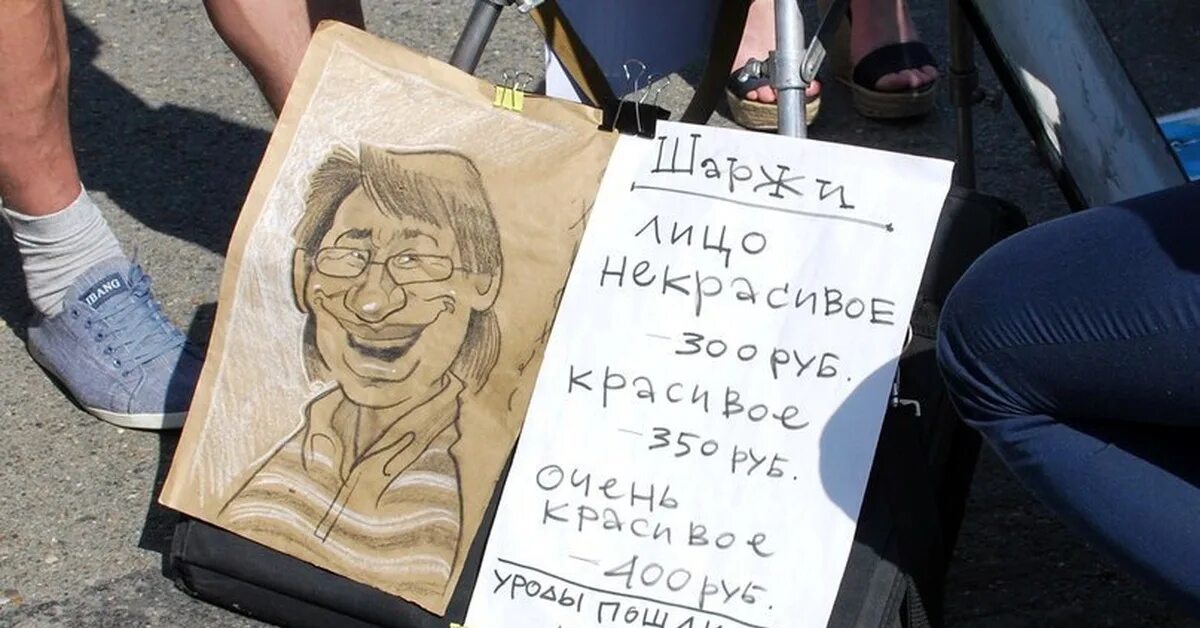 Шаржи
лицо
некрасивое
– 300 руб.
красивое
– 350 руб.
очень
красивое
– 400 руб.
уроды пошли
IBANG